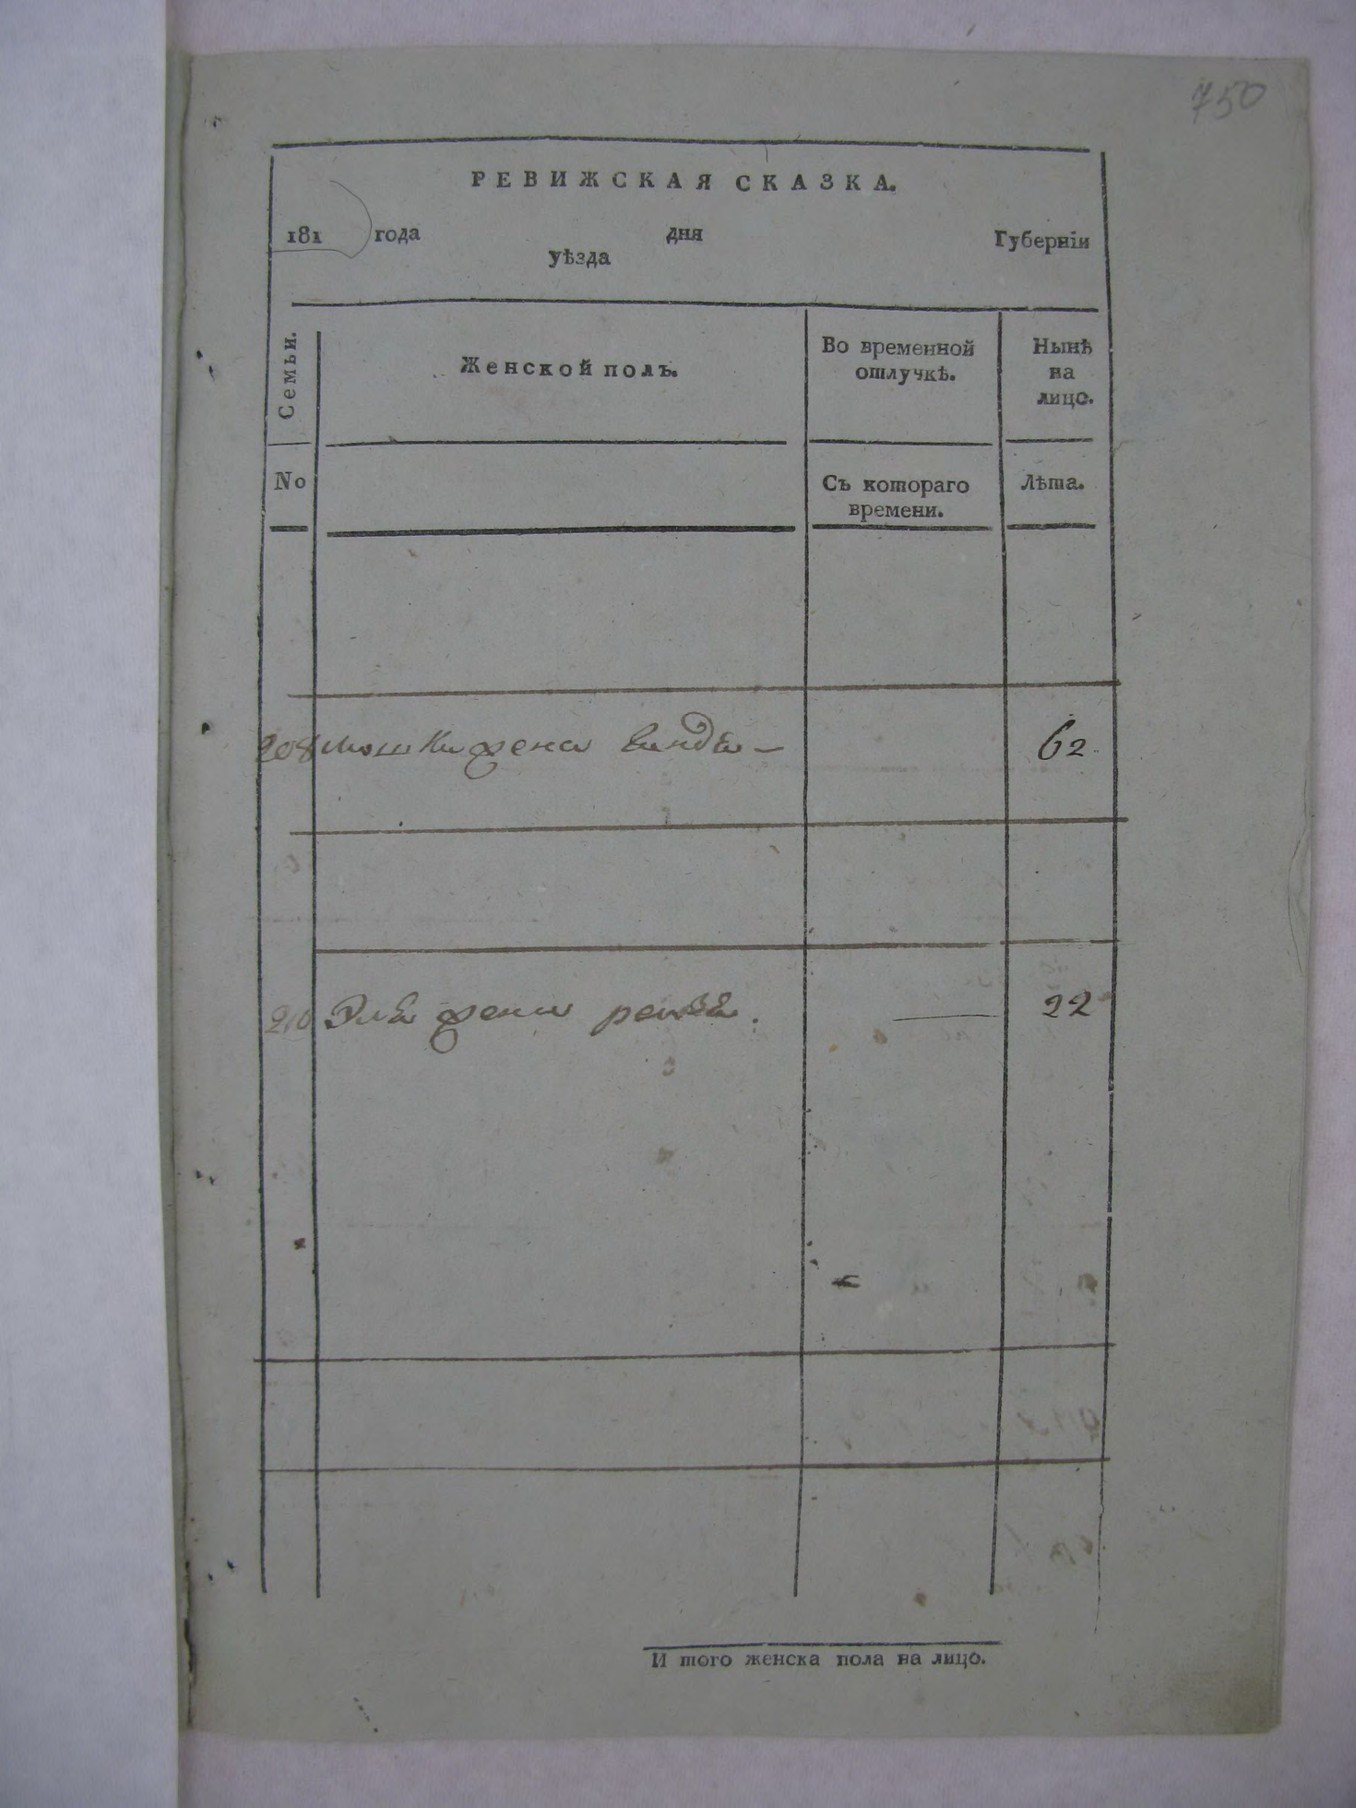 750
РЕВИЖСКАЯ СКАЗКА.
181 года дня Губерніи
уѣзда
Семьи. Женской полъ. Во временной отлучкѣ. Нынѣ на лицо.
No Съ котораго времени. Лѣта.
208 Мошки жена винда 62
210 жена 22
И того женска пола на лицо.